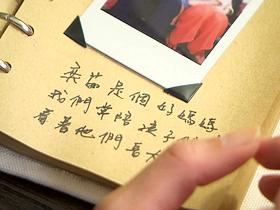 是個好媽媽
我們常陪孩子
看著他們長大